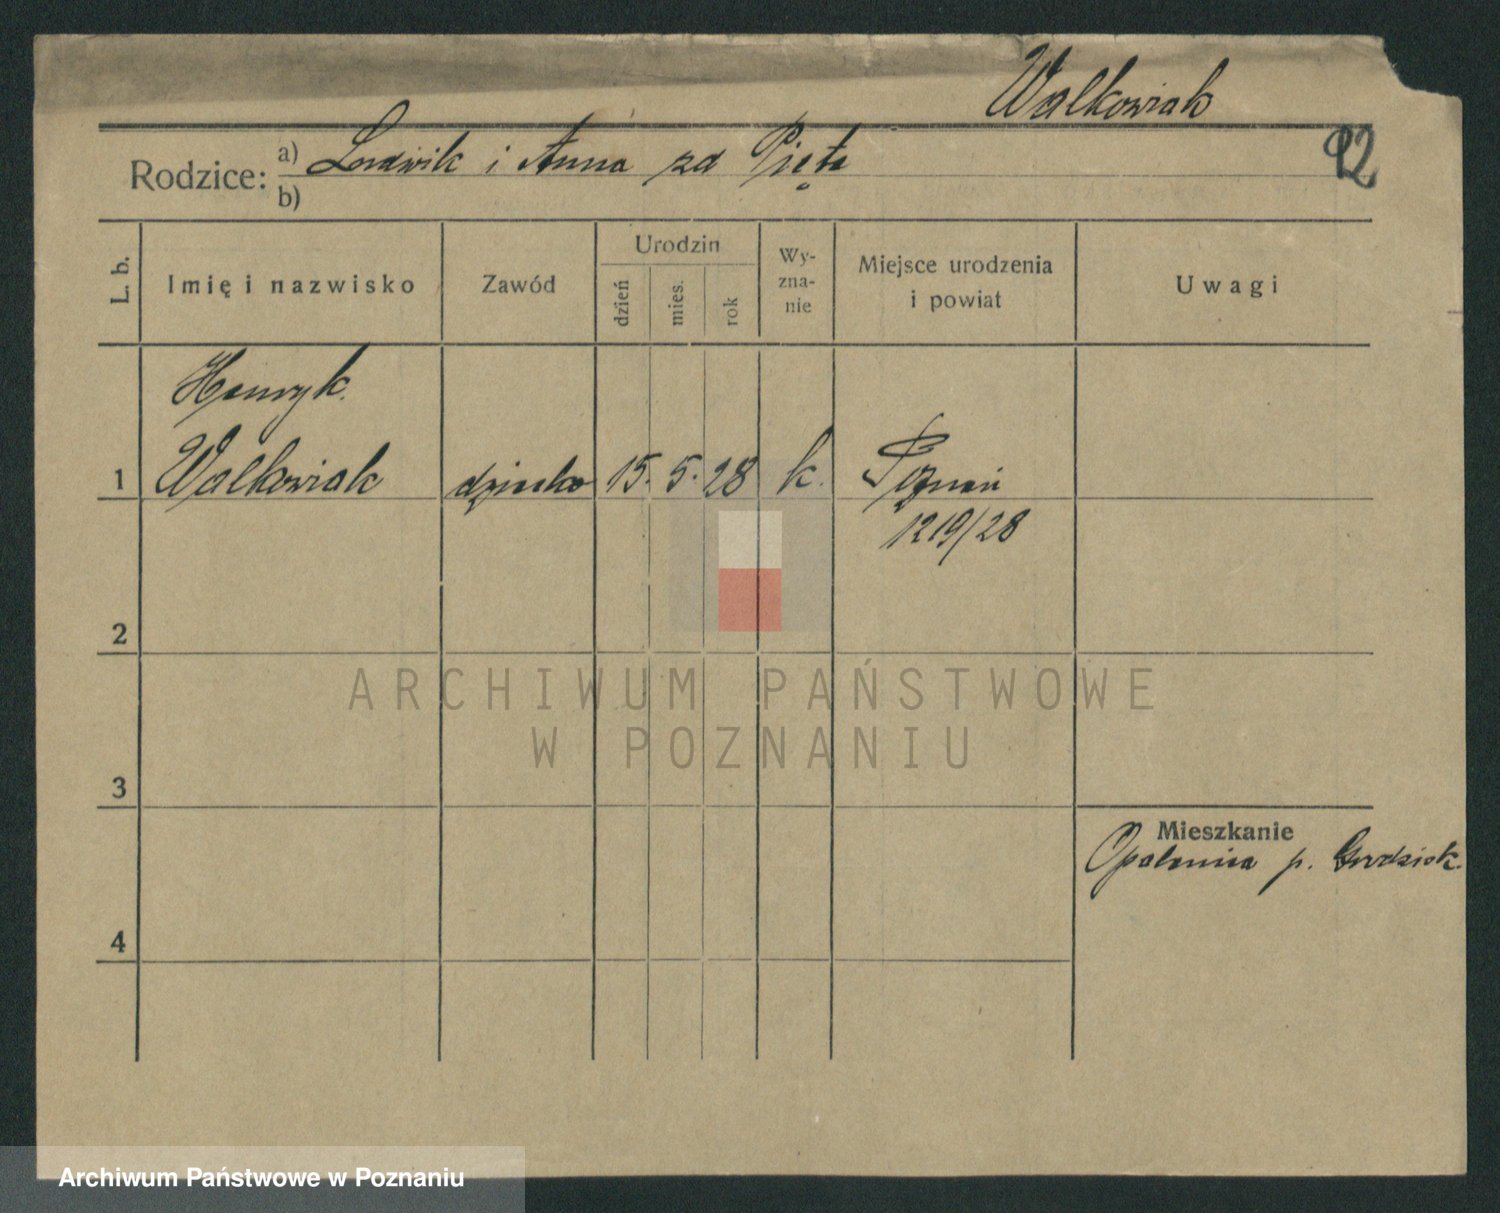 Walkowiak
92
Rodzice: a) Ludwik i Anna zd Pięta
b)
L. b. Imię i nazwisko Zawód Urodzin dzień mies. rok Wy-zna-nie Miejsce urodzenia i powiat Uwagi
Henryk.
1 Walkowiak dziecko 15. 5. 28 k. Poznań
1219/28
2
ARCHIWUM PAŃSTWOWE
W POZNANIU
3
Mieszkanie
Opalenica p. Grodzisk.
4
Archiwum Państwowe w Poznaniu